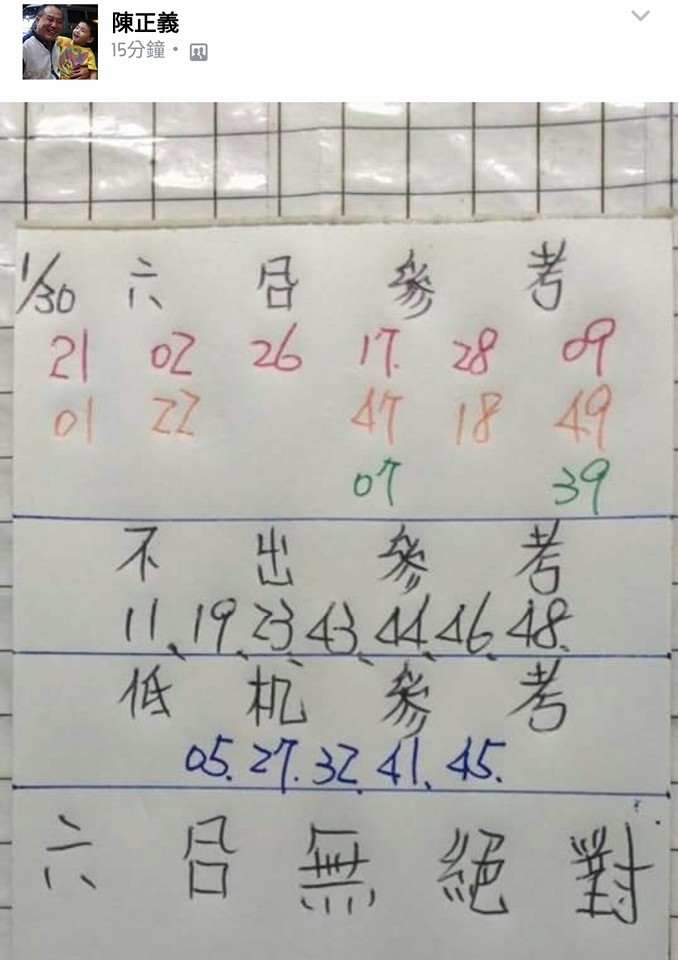 陳正義
15分鐘・
1/30 六合參考
21 02 26 17. 28 09
01 22 47 18 49
07 39
不出參考
11、19、23、43、44、46、48、
低机參考
05、27、32、41、45、
六合無絕對